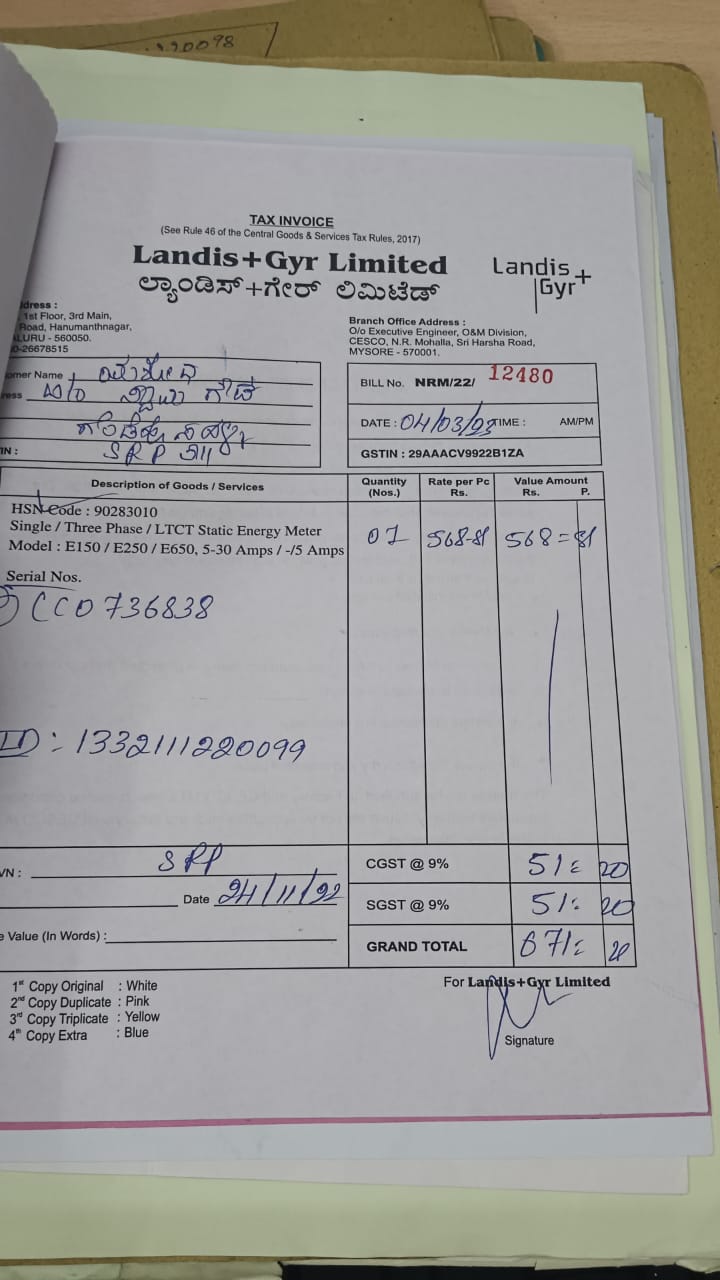 220098
TAX INVOICE
(See Rule 46 of the Central Goods & Services Tax Rules, 2017)
Landis+Gyr Limited
ಲ್ಯಾಂಡಿಸ್+ಗೇರ್ ಲಿಮಿಟೆಡ್
Landis+
Gyr
dress :
1st Floor, 3rd Main,
Road, Hanumanthnagar,
ALURU - 560050.
0-26678515
Branch Office Address :
O/o Executive Engineer, O&M Division,
CESCO, N.R. Mohalla, Sri Harsha Road,
MYSORE - 570001.
omer Name
ress
IN : SRP
BILL No. NRM/22/ 12480
DATE : 04/03/23 TIME : AM/PM
GSTIN : 29AAACV9922B1ZA
Description of Goods / Services Quantity (Nos.) Rate per Pc Rs. Value Amount Rs. P.
HSN Code : 90283010
Single / Three Phase / LTCT Static Energy Meter
Model : E150 / E250 / E650, 5-30 Amps / -/5 Amps 01 568-81 568=81
Serial Nos.
CCO736838
ID : 1332111220099
VN : SRP
Date 24/11/22
e Value (In Words) :
CGST @ 9% 51= 20
SGST @ 9% 51= 20
GRAND TOTAL 671= 20
1st Copy Original : White
2nd Copy Duplicate : Pink
3rd Copy Triplicate : Yellow
4th Copy Extra : Blue
For Landis+Gyr Limited
Signature